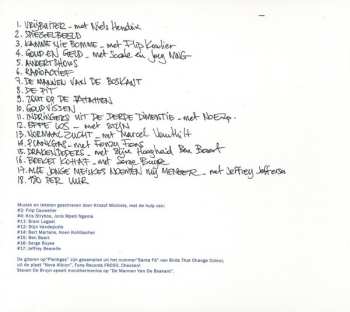 1. VRIJBUITER – met Niels Hendrix
2. SPIEGELBEELD
3. KAMME NIE BOMME – met Flip Kowlier
4. GOUD EN GELD – met Scale en Joey
5. ANDERTSHOWS
6. RADIOACTIEF
7. DE MANNEN VAN DE BOSKANT
8. DE PIT
9. ZOUT OP DE PATATTEN
10. GOUDVISSEN
11. INDRINGERS UIT DE DERDE DIMENSTIE – met
12. EFFE LOS – met STIJN
13. NORMAAL ZUCHT – met Marcel Vanthilt
14. PLANKGAS – met
15. DRAKENDODERS – met Zijne Hoogheid Ben Baert
16. BREEKT KOTTAF – met Serge Buyse
17. ALLE JONGE MEISKES NOEMEN MIJ MENEER – met Jeffrey Jefferson
18. 180 PER UUR
Muziek en teksten geschreven door Kristof Michiels, met de hulp van:
#3: Filip Cauwelier
#4: Kris Strybos, Joris Mpeti Ngamis
#11: Bram Legaet
#12: Stijn Vandeputte
#14: Bert Martens, Koen Kohlbacher
#15: Ben Baert
#16: Serge Buyse
#17: Jeffrey Bearelle
De gitaren op "Plankgas" zijn gesampled uit het nummer "Santa Fé" van Birds That Change Colour,
uit de plaat "Nova Vision", Tune Records FRDSS, Checkem!
Steven De Bruyn speelt mondharmonica op "De Mannen Van De Boskant".